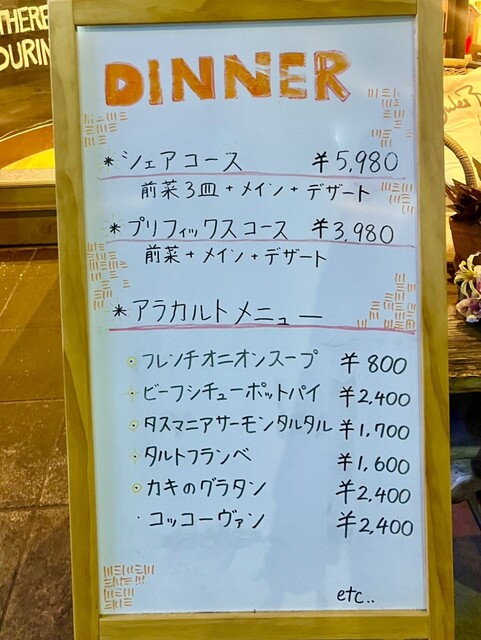 THERE
OURIN
DINNER
* シェアコース ￥5,980
前菜3皿+メイン+デザート
* プリフィックスコース ￥3,980
前菜+メイン+デザート
* アラカルトメニュー
フレンチオニオンスープ ￥800
ビーフシチューポットパイ ￥2,400
タスマニアサーモンタルタル ￥1,700
タルトフランベ ￥1,600
カキのグラタン ￥2,400
・コッコーヴァン ￥2,400
etc..